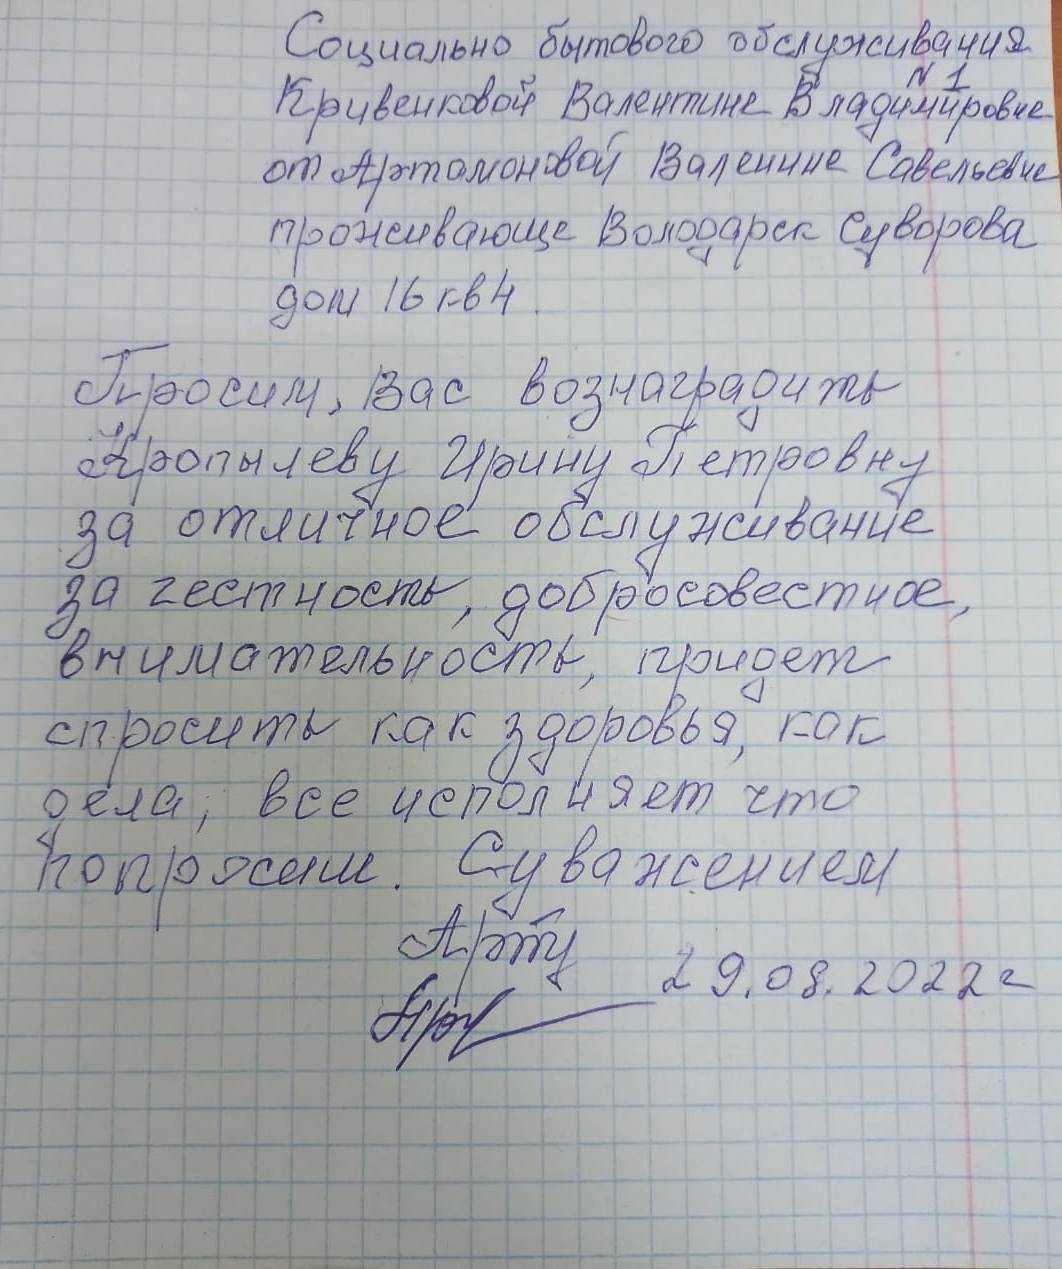 Социально бытового обслуживания
N 1
Кривенковой Валентине Владимировне
от Артомоновой Валенине Савельевне
проживающе Володарск Суворова
дом 16 кв 4.
Просим, Вас вознаградить
Кропылеву Ирину Петровну
за отличное обслуживание
за честность, добросовестное,
внимательность, придет
спросить как здоровья, как
дела, все исполняет что
попросим. С уважением
29.08.2022 г